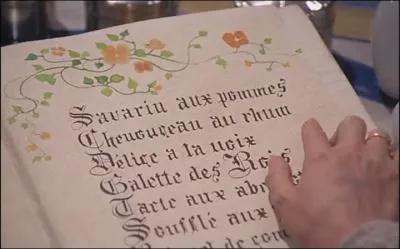 Savarin aux pommes
Chenonceau au rhum
Délice à la noix
Galette des Rois
Tarte aux
Soufflé aux
de